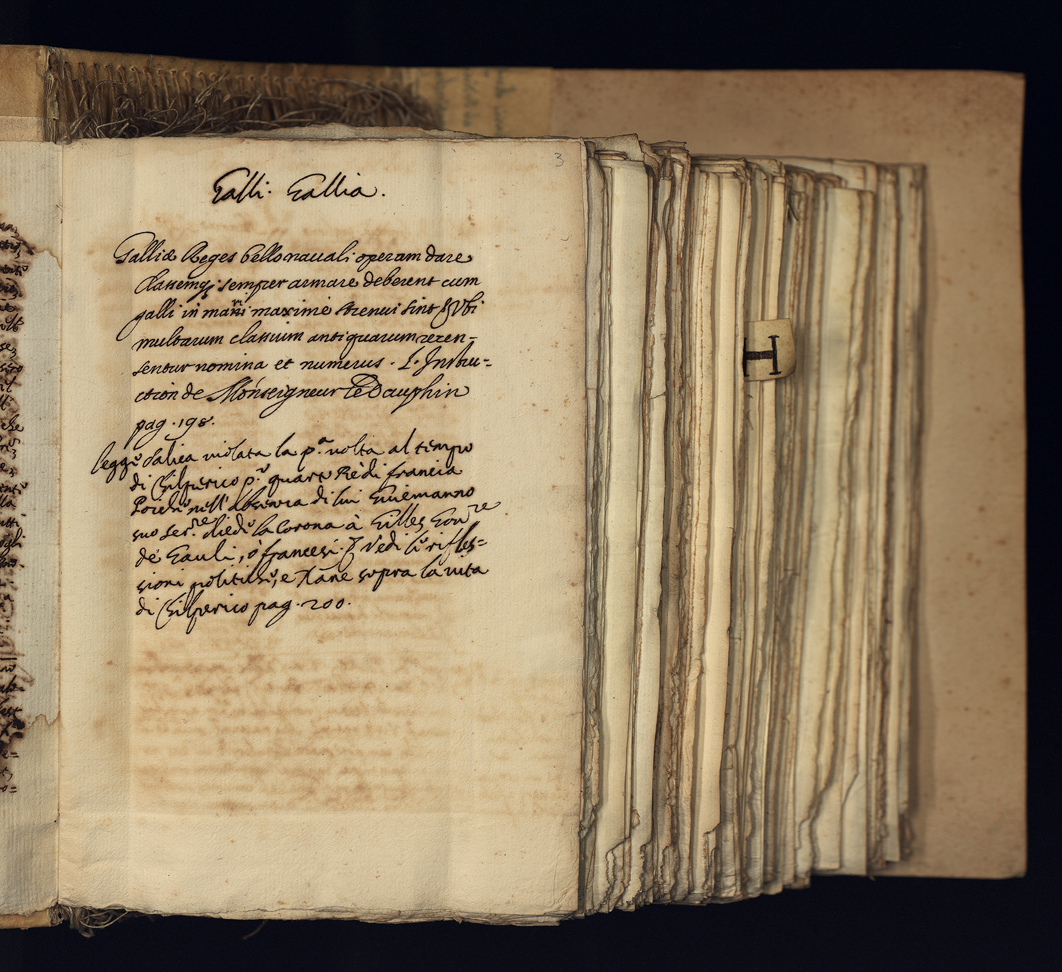 3
Galli. Gallia.
Galliæ Reges bello nauali operam dare
Classemq; semper armare deberent cum
galli in mari maximè strenui sint & Vbi
multarum classium antiquarum recen-
sentur nomina et numerus. L. Instru-
ction de Monseigneur le Dauphin
pag. 198.
legge salica violata la p.ª volta al tempo
di Chilperico p.º quarto Rè di francia
Poiche nell'absenza di lui Guiemanno
suo ser.re diede la Corona à Gilles Gou.re
de Gauli, ò francesi. Vedi le rifles-
sioni politiche, e sopra la vita
di Chilperico pag. 200.
H